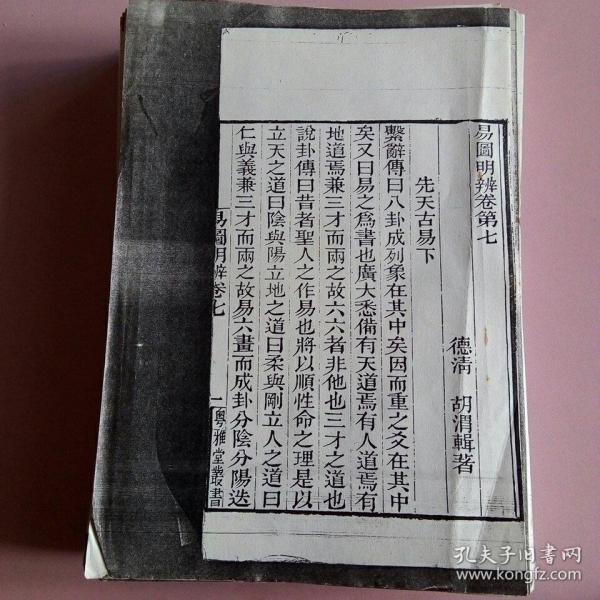 易圖明辨卷第七
德清　胡渭輯著
先天古易下
繫辭傳曰八卦成列象在其中矣因而重之爻在其中
矣又曰易之爲書也廣大悉備有天道焉有人道焉有
地道焉兼三才而兩之故六六者非他也三才之道也
說卦傳曰昔者聖人之作易也將以順性命之理是以
立天之道曰陰與陽立地之道曰柔與剛立人之道曰
仁與義兼三才而兩之故易六畫而成卦分陰分陽迭
易圖明辨卷七
一
粵雅堂叢書
孔夫子旧书网
www.kongfz.com